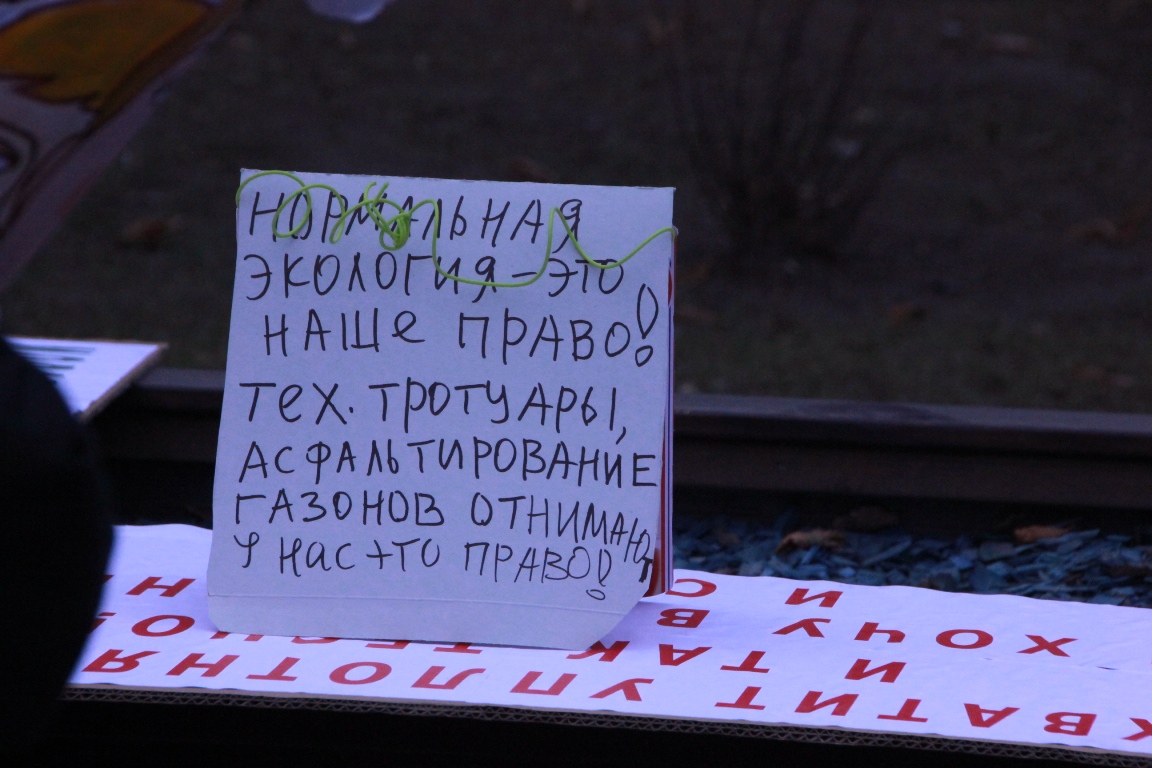 НОРМАЛЬНАЯ
ЭКОЛОГИЯ – ЭТО
НАШе ПРАВО!
Тех. ТРОТУАРЫ,
АСФАЛЬТИРОВАНИЕ
ГАЗОНОВ ОТНИМАЮТ
У НАС ЭТО ПРАВО!
ХВАТИТ УПЛОТНЯ
И ТАК
ХОЧУ В
И